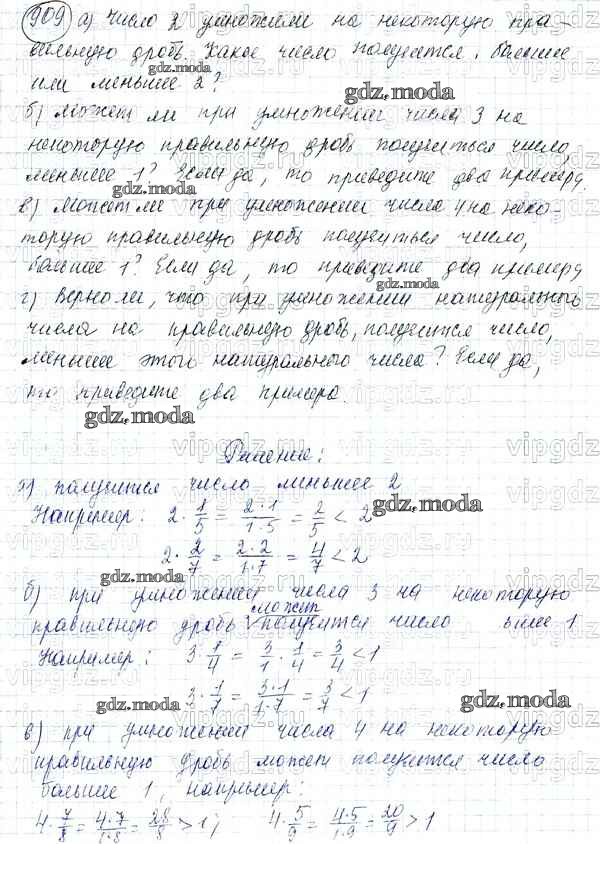 909 а) Число 2 умножили на некоторую пра-
вильную дробь. Какое число получится, большее
или меньшее 2?
б) Может ли при умножении числа 3 на
некоторую правильную дробь получиться число,
меньшее 1? Если да, то приведите два примера.
в) Может ли при умножении числа 4 на неко-
торую правильную дробь получиться число,
большее 1? Если да, то приведите два примера
г) Верно ли, что при умножении натурального
числа на правильную дробь, получится число,
меньшее этого натурального числа? Если да,
то приведите два примера.
Решение:
а) получится число меньшее 2
Например: 2 · 1/5 = 2·1/1·5 = 2/5 < 2
2 · 2/7 = 2·2/1·7 = 4/7 < 2
б) при умножении числа 3 на некоторую
может
правильную дробь получится число 1
Например: 3 · 1/4 = 3/1 · 1/4 = 3/4 < 1
3 · 1/7 = 3·1/1·7 = 3/7 < 1
в) при умножении числа 4 на некоторую
правильную дробь может получится число
большее 1, например:
4 · 7/8 = 4·7/1·8 = 28/8 > 1; 4 · 5/9 = 4·5/1·9 = 20/9 > 1
gdz.moda
vipgdz.ru